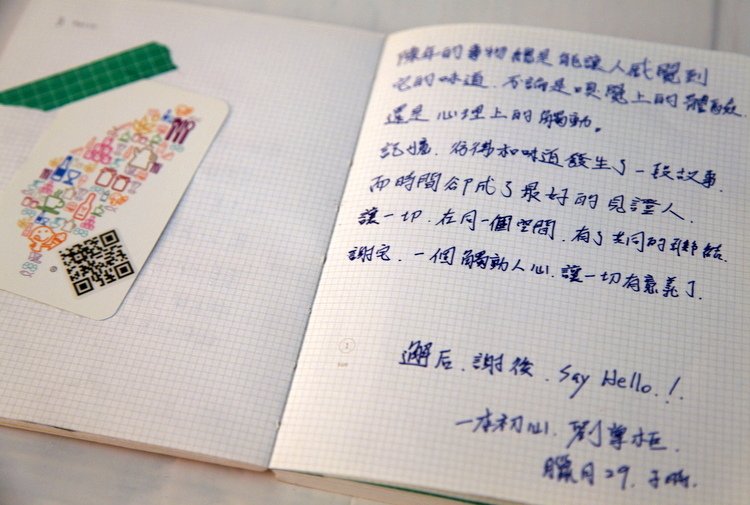 陳年的事物總是能讓人感覺到
它的味道.不論是嗅覺上的體驗
還是心理上的觸動。
記憶.彷彿和味道發生了一段故事.
而時間卻成了最好的見證人.
讓一切.在同一個空間.有了共同的聯結.
謝宅.一個觸動人心.讓一切有意義了.
邂后.謝後.Say Hello.!
一本初心.劉掌柜.
臘月29.子時.